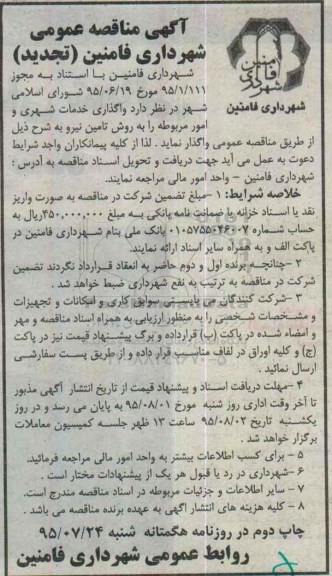 آگهی مناقصه عمومی
شهرداری فامنین (تجدید)
شهرداری فامنین
شهرداری فامنین با استناد به مجوز
۹۵/۱/۱۱۱ مورخ ۹۵/۰۶/۱۹ شورای اسلامی
شهر در نظر دارد واگذاری خدمات شهری و
امور مربوطه را به روش تامین نیرو به شرح ذیل
از طریق مناقصه عمومی واگذار نماید . لذا از کلیه پیمانکاران واجد شرایط
دعوت به عمل می آید جهت دریافت و تحویل اسناد مناقصه به آدرس :
شهرداری فامنین - واحد امور مالی مراجعه نمایند.
خلاصه شرایط: ۱ -مبلغ تضمین شرکت در مناقصه به صورت واریز
نقد یا اسناد خزانه یا ضمانت نامه بانکی به مبلغ ۴۵۰,۰۰۰,۰۰۰ریال به
حساب شماره ۰۱۰۵۷۵۵۰۴۶۰۰۷ بانک ملی بنام شهرداری فامنین در
پاکت الف و به همراه سایر اسناد ارائه نمایند.
۲ -چنانچه برنده اول و دوم حاضر به انعقاد قرارداد نگردند تضمین
شرکت در مناقصه به ترتیب به نفع شهرداری ضبط خواهد شد .
۳ -شرکت کنندگان می بایستی سوابق کاری و امکانات و تجهیزات
و مشخصات شخصی را به منظور ارزیابی به همراه اسناد مناقصه و مهر
و امضاء شده در پاکت (ب) قرارداده و برگ پیشنهاد قیمت نیز در پاکت
(ج) و کلیه اوراق در لفاف مناسب قرار داده و از طریق پست سفارشی
ارسال نمائید .
۴ -مهلت دریافت اسناد و پیشنهاد قیمت از تاریخ انتشار آگهی مذبور
تا آخر وقت اداری روز شنبه مورخ ۹۵/۰۸/۰۱ به پایان می رسد و در روز
یکشنبه تاریخ ۹۵/۰۸/۰۲ ساعت ۱۳ ظهر جلسه کمیسیون معاملات
برگزار خواهد شد .
۵ - برای کسب اطلاعات بیشتر به واحد امور مالی مراجعه فرمائید.
۶ -شهرداری در رد یا قبول هر یک از پیشنهادات مختار است .
۷ - سایر اطلاعات و جزئیات مربوطه در اسناد مناقصه مندرج است.
۸ - کلیه هزینه های انتشار آگهی به عهده برنده مناقصه می باشد .
چاپ دوم در روزنامه هگمتانه شنبه ۹۵/۰۷/۲۴
روابط عمومی شهرداری فامنین